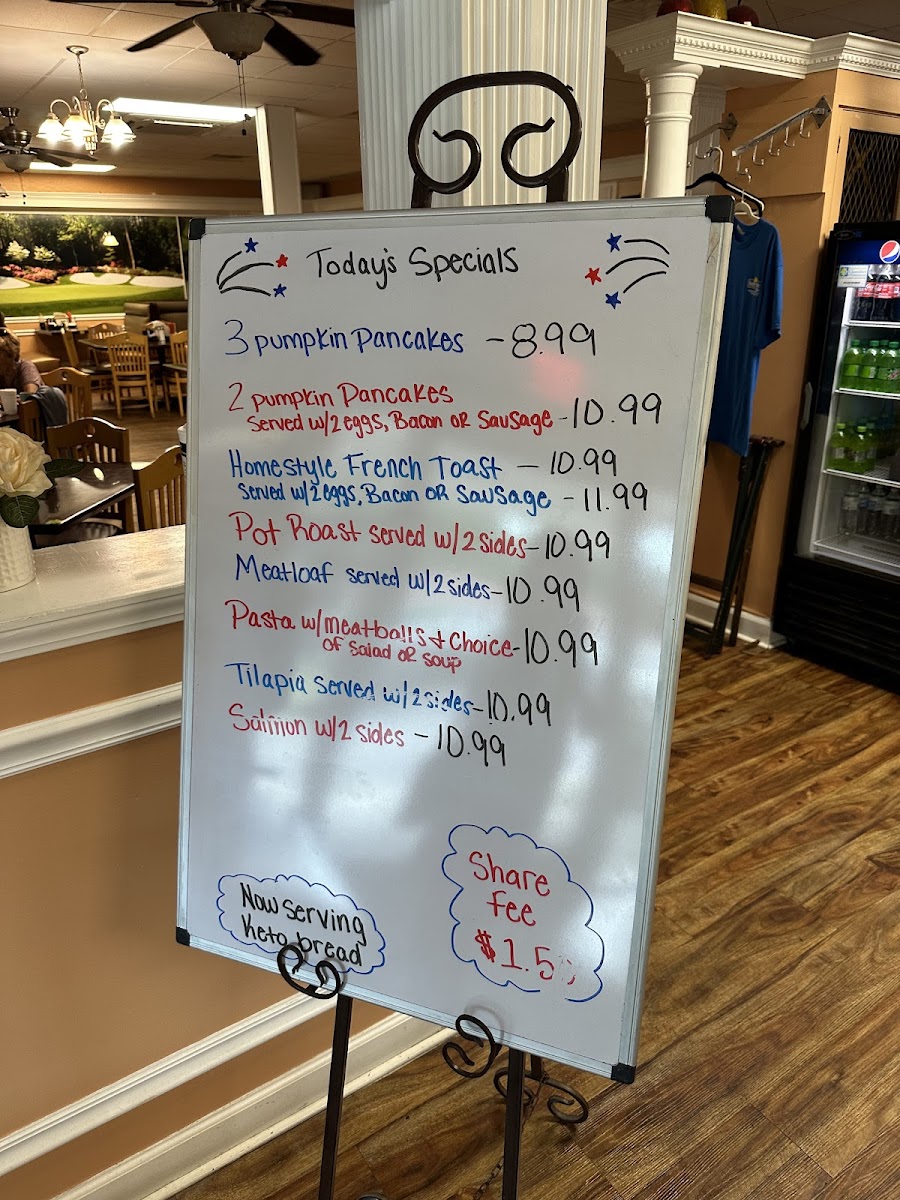 Today's Specials
3 pumpkin Pancakes - 8.99
2 pumpkin Pancakes
Served w/2 eggs, Bacon OR Sausage - 10.99
Homestyle French Toast - 10.99
Served w/2 eggs, Bacon OR Sausage - 11.99
Pot Roast served w/2 sides - 10.99
Meatloaf served w/2 sides - 10.99
Pasta w/meatballs + Choice - 10.99
of Salad or Soup
Tilapia served w/2 sides - 10.99
Salmon w/2 sides - 10.99
Now serving
Keto bread
Share
fee
$1.5